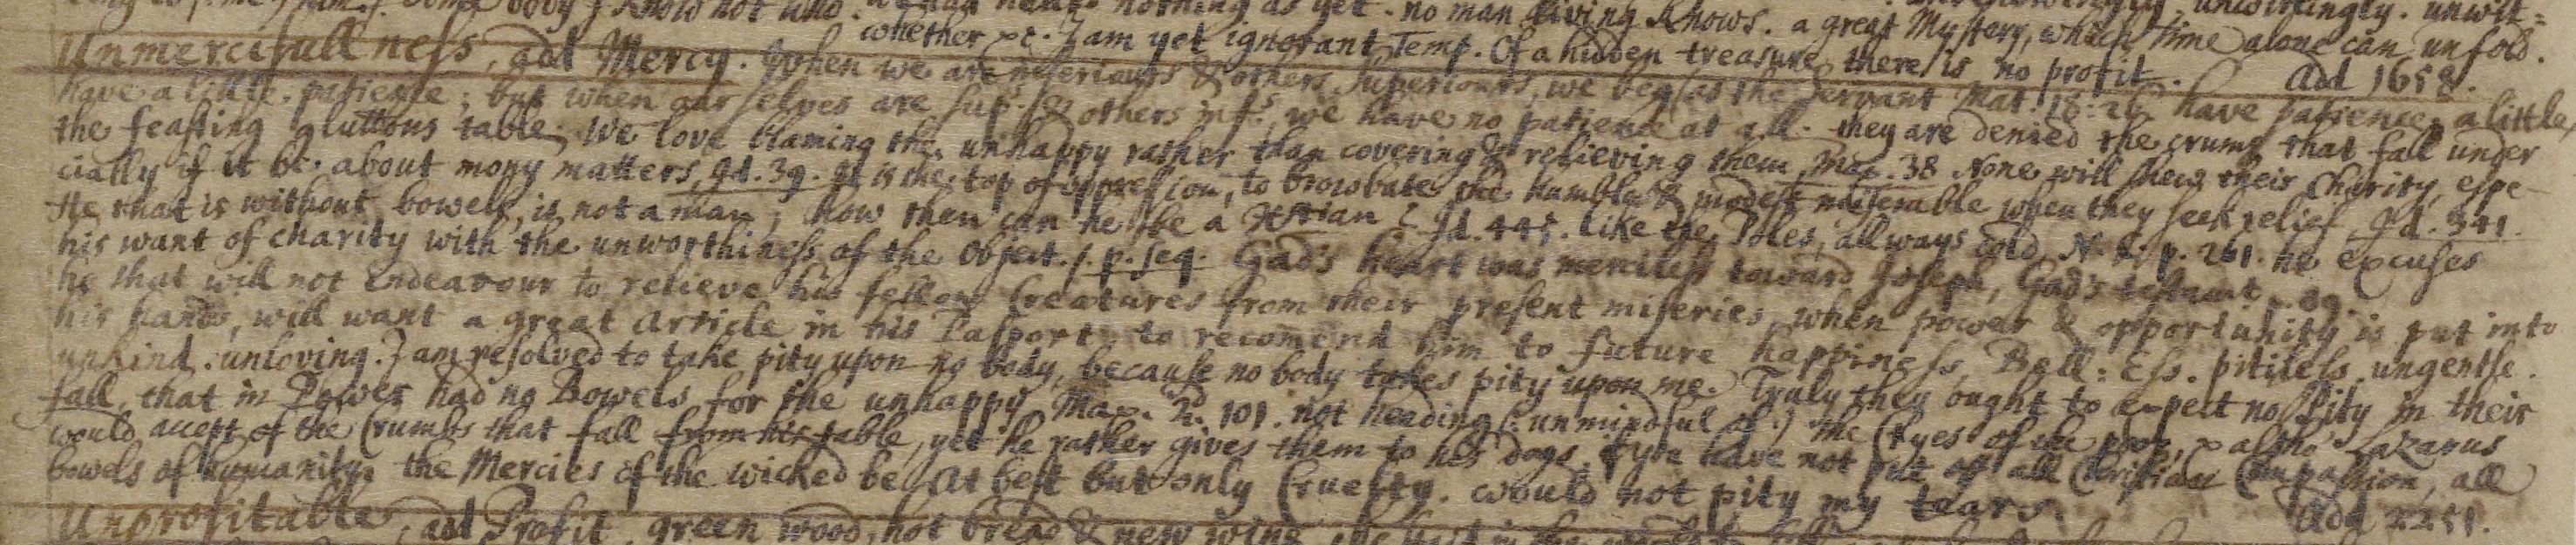 body I know not who. we had heard nothing as yet. no man living knows. a great Mystery, which time alone can unfold.
whether &c. I am yet ignorant Temp. Of a hidden treasure there is no profit. Add 1658.
Unmercifullness, add Mercy. When we are inferiours & others Superiours, we beg (as the servant Mat. 18:26 have patience, a little,
have a little patience; but when our selves are sup.rs & others inf.rs, we have no patience at all. they are denied the crums that fall under
the feasting gluttons table; We love blaming the unhappy rather than covering & relieving them Max. 38 None will shew their Charity, espe-
cially if it be about mony matters, Id. 39. It is the top of oppression, to browbate the humble & modest miserable when they seek relief Id. 341.
He that is without bowels, is not a man; how then can he be a Xstian? Id. 445. like the Poles, allways cold N. L. p. 261. he excuses
his want of charity with the unworthiness of the Object. f. p. seq. Gad's heart was merciless toward Joseph, Gad's testamt. 89.
he that will not endeavour to relieve his fellow Creatures from their present miseries, when power & opportunity is put into
his hands, will want a great Article in his Pasport, to recomend him to future happiness Bell: Ess. pitiless, ungentle.
unkind. unloving. I am resolved to take pity upon no body, because no body takes pity upon me. Truly they ought to expect no Pity in their
fall, that in Power had no Bowels for the unhappy Max. 2d. 101. not heading (: unmindful of :) the Cryes of the poor, & altho' Lazarus
would accept of the Crumbs that fall from his table, yet he rather gives them to his dogs. if you have not put off all Christian Compassion, all
bowels of humanity. the Mercies of the wicked be At best but only Cruelty. would not pity my tears. Add 2251.
Unprofitable, add Profit. green wood, hot bread & new wine